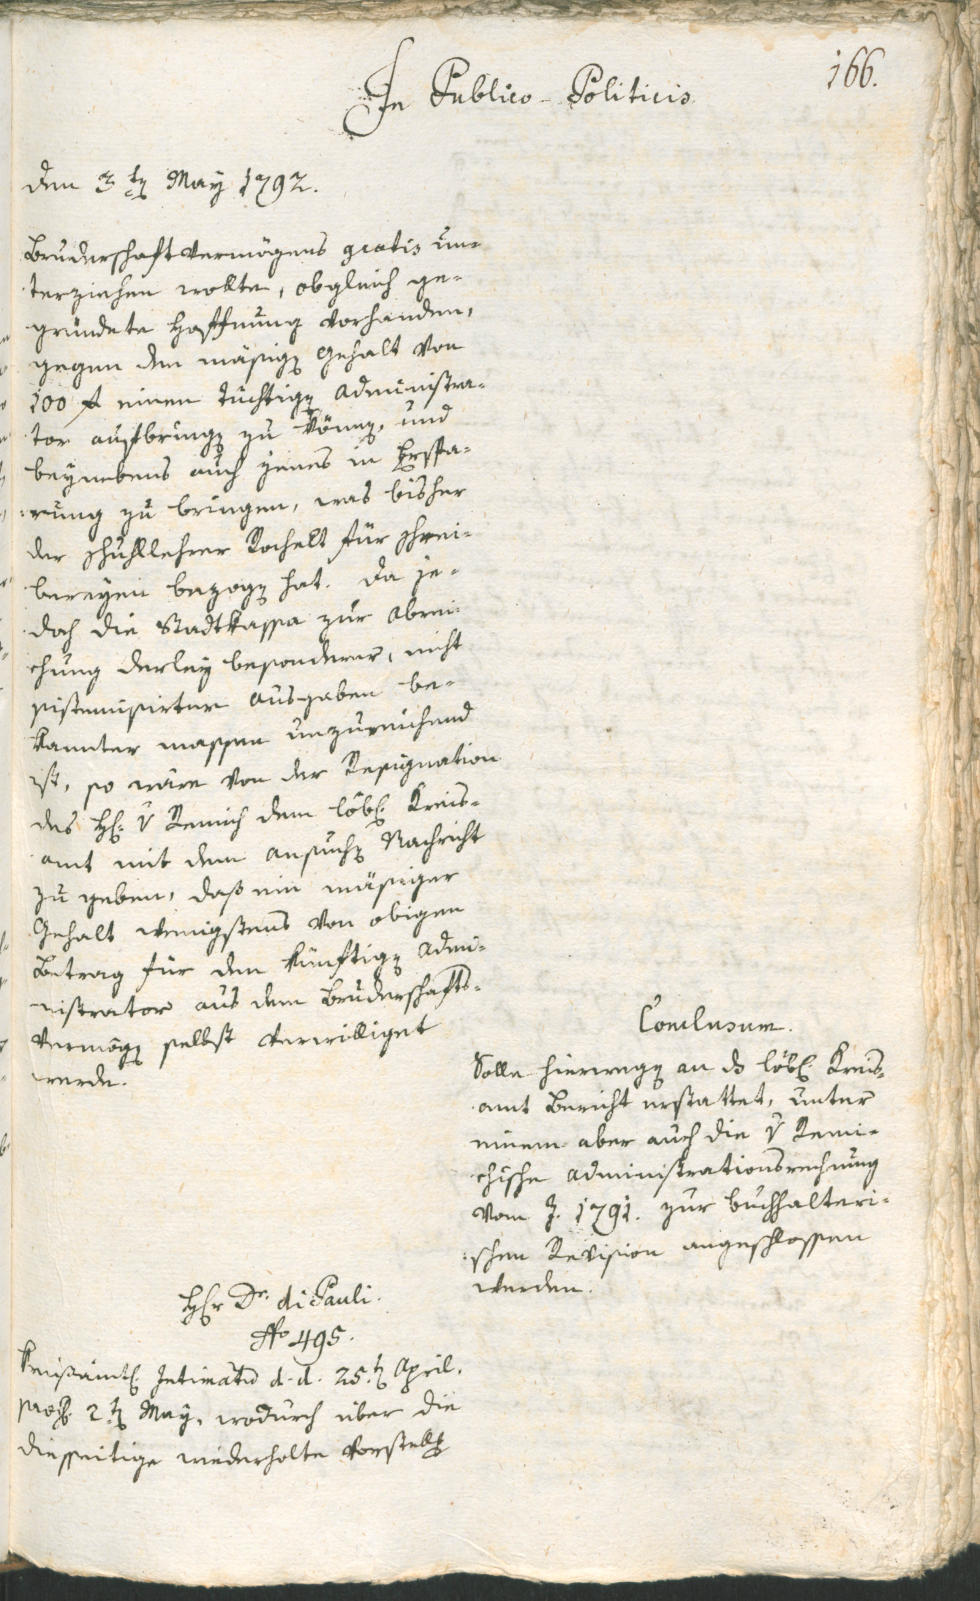 166.
In Publico-Politicis
den 3.ten May 1792.
Bruderschaftvermögens gratis un-
terziehen wollte, obgleich ge-
gründete Hoffnung vorhanden,
gegen den mäßigen Gehalt von
100 f einen tüchtigen Administra-
tor aufbringen zu können, und
beynebens auch jenes in Erspa-
rung zu bringen, was bisher
der Schullehrer Rochelt für Schrei-
bereyen bezogen hat. Da je-
doch die Stadtkassa zur Abrei-
chung derley besonderer, nicht
sistemisirter Ausgaben be-
kannter massen unzureichend
ist, so wäre von der Resignation
des H: v Remich dem löbl: Kreis-
amt mit dem Ansuchen Nachricht
zu geben, daß ein mäßiger
Gehalt wenigstens von obigen
Betrag für den künftigen Admi-
nistrator aus dem Bruderschafts-
vermögen selbst verwilliget
werde.
Conclusum.
Solle hierwegen an ds löbl: Kreis-
amt Bericht erstattet, unter
einem aber auch die v Remi-
chische Administrationsrechnung
vom J. 1791. zur buchhalteri-
schen Revision angeschlossen
werden.
Hr Dr. di Pauli.
No 495.
Kreißämtl: Intimatum d. d. 25.t April.
praes: 2.ten May, wodurch über die
diesseitige wiederholte Vorstellg